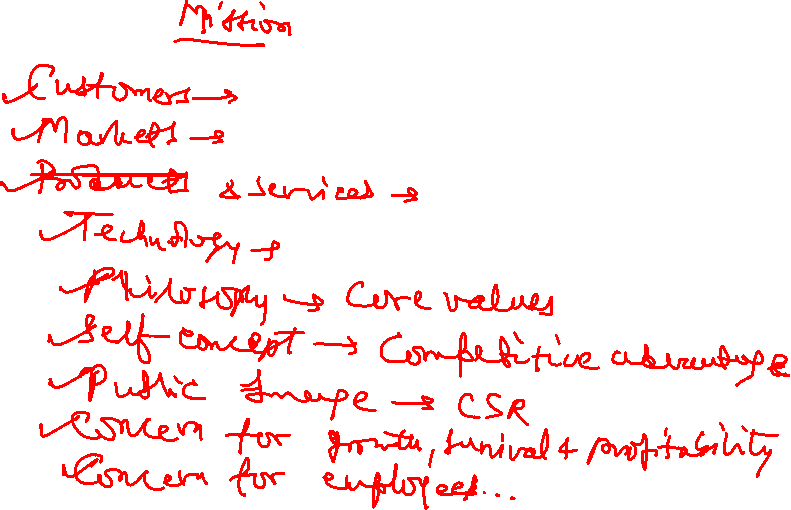 Mission
Customers →
Markets →
Products & services →
Technology →
Philosophy → Core values
Self-concept → Competitive advantage
Public Image → CSR
Concern for growth, survival & profitability
Concern for employees...